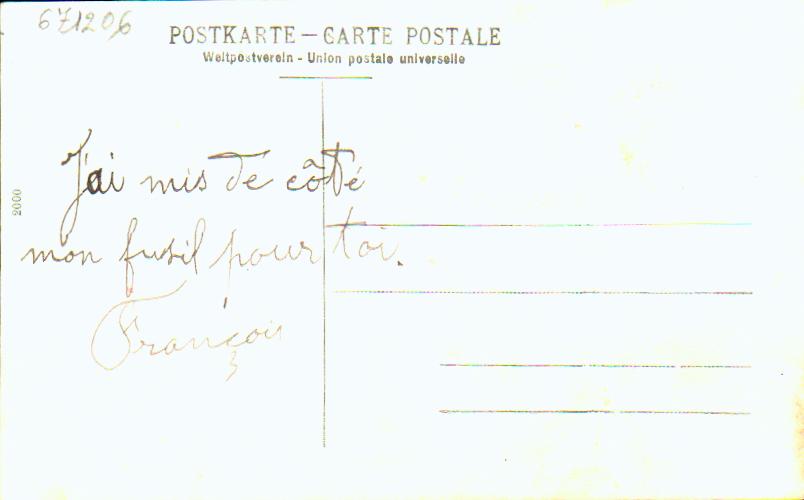 671206
POSTKARTE — CARTE POSTALE
Weltpostverein - Union postale universelle
J'ai mis de côté
mon fusil pour toi.
François
2000